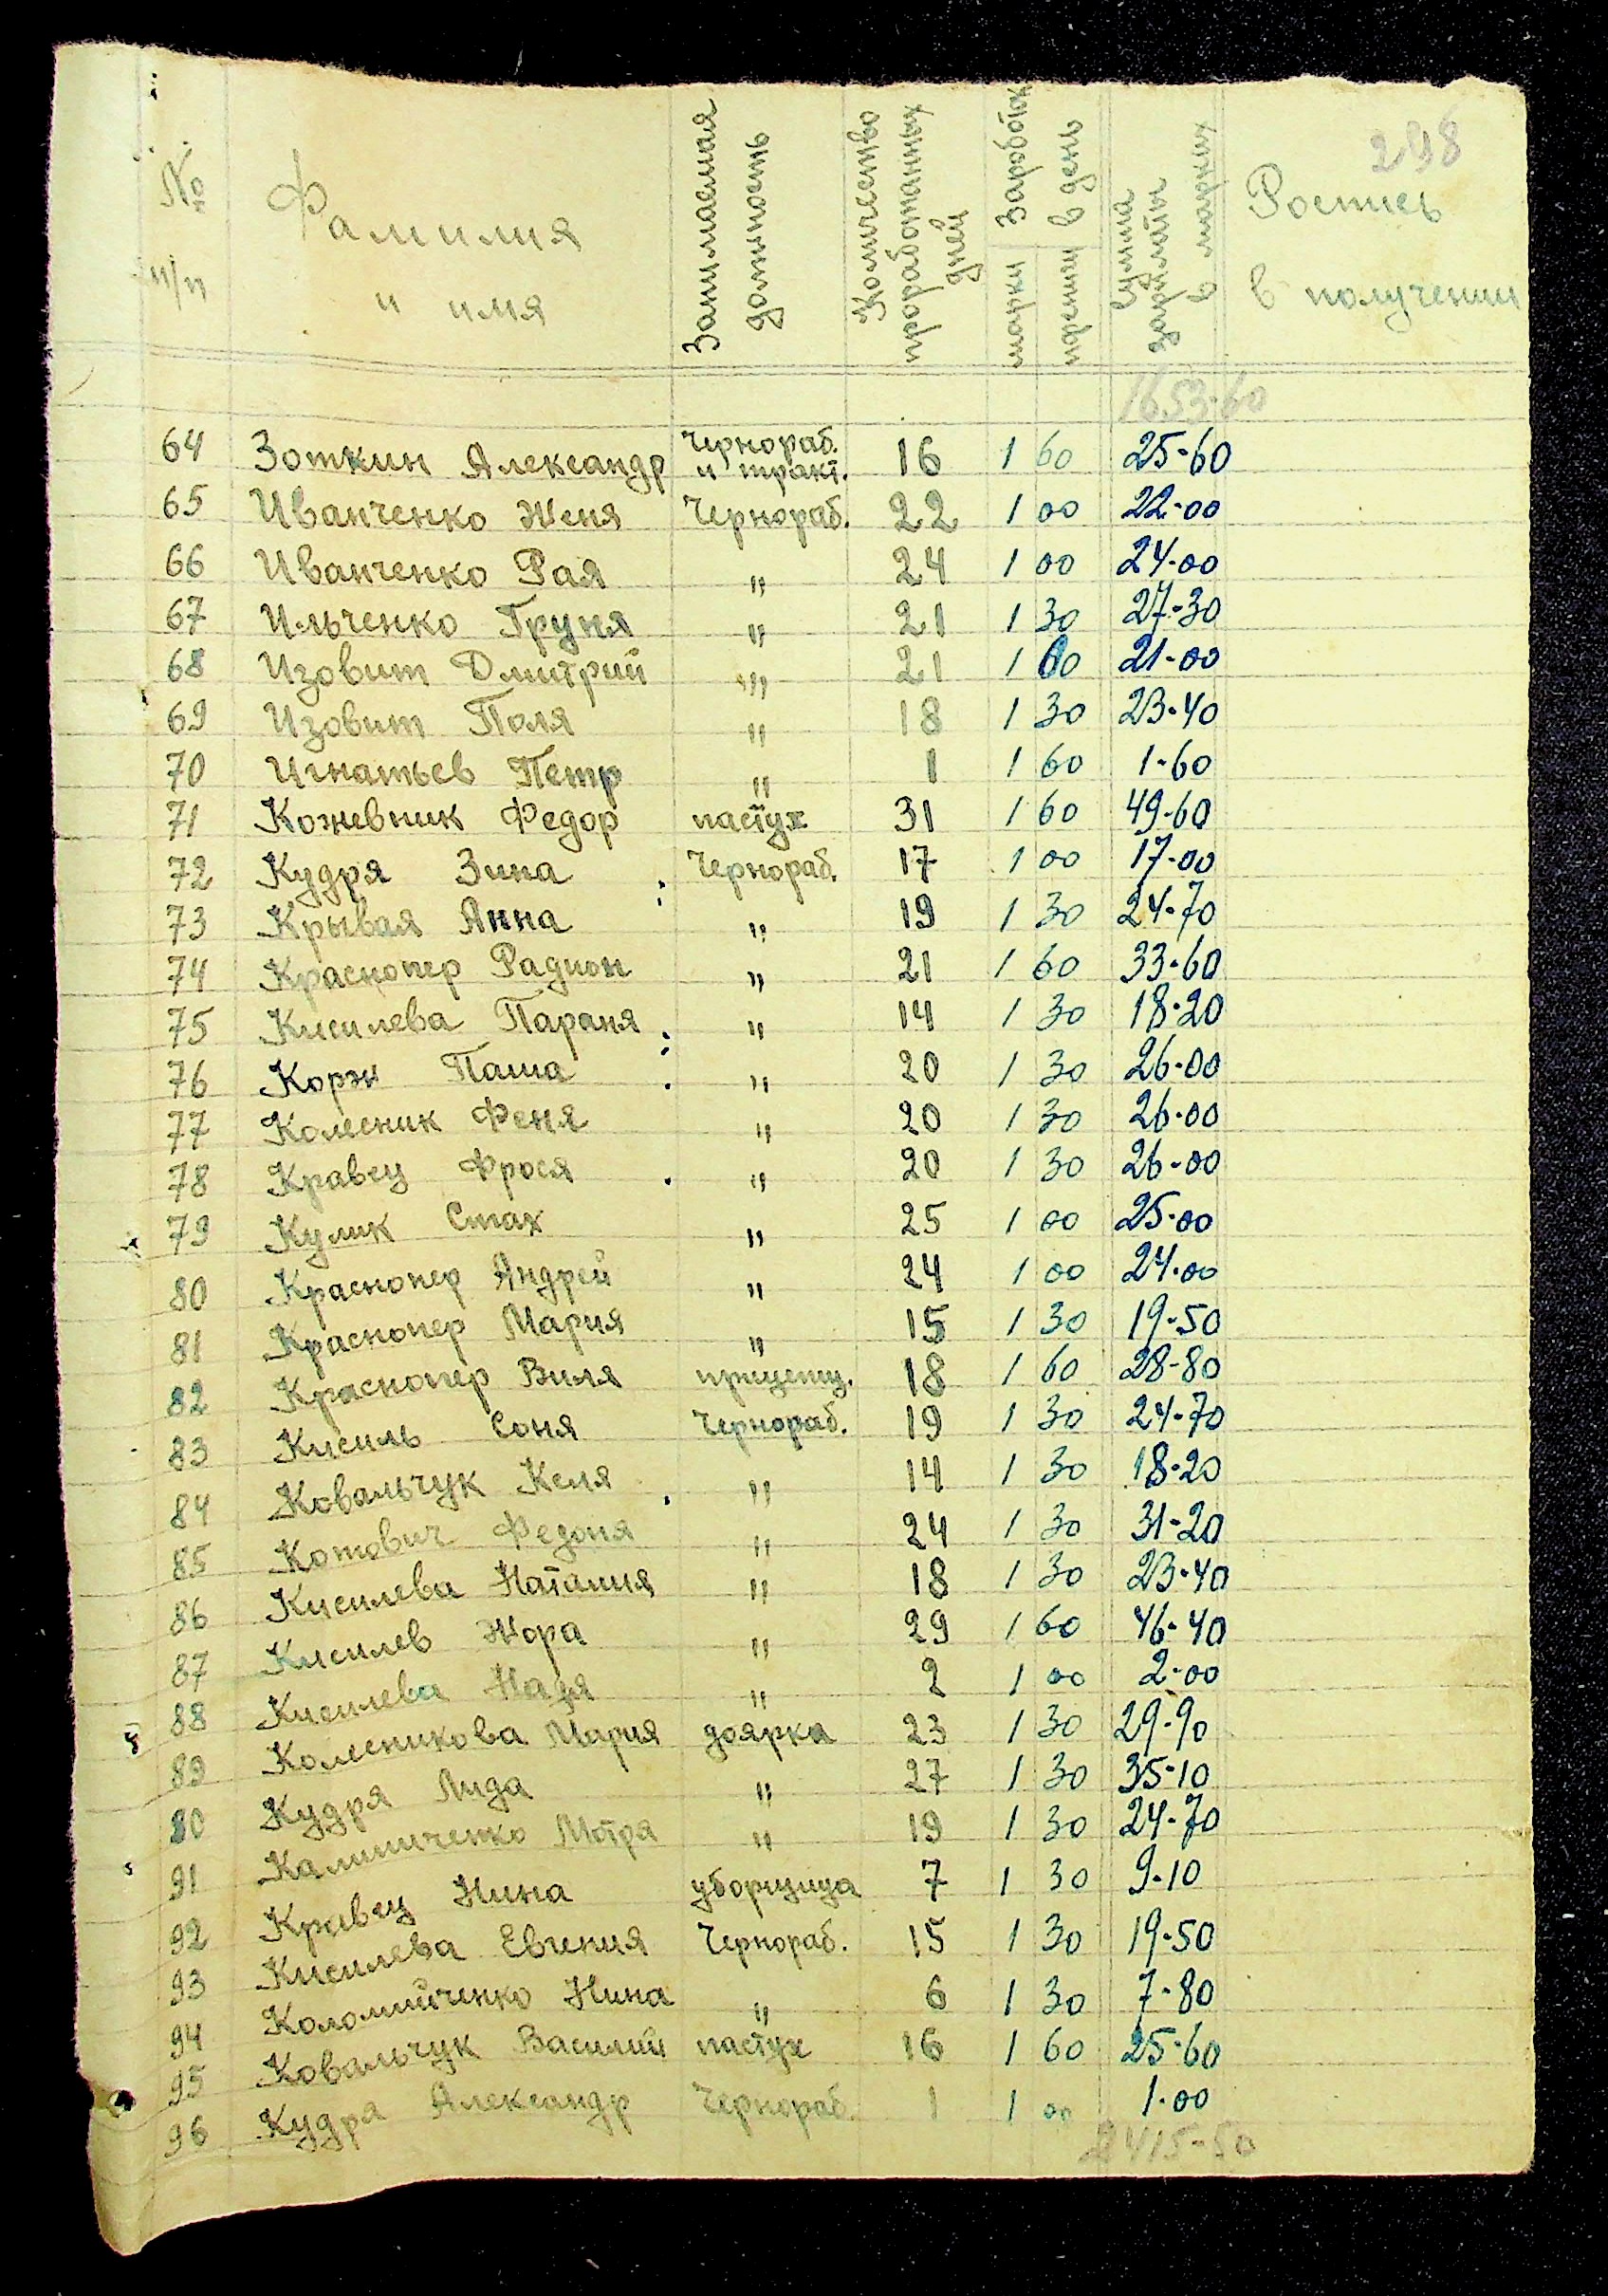 298
№ п/п Фамилия и имя Занимаемая должность Количество проработанных дней Заработок в день марки пфениги Сумма зарплаты в марках Роспись в получении
1653-60
64 Зоткин Александр Чернораб. и тракт. 16 1 60 25-60
65 Иванченко Женя Чернораб. 22 1 00 22-00
66 Иванченко Рая " 24 1 00 24-00
67 Ильченко Груня " 21 1 30 27-30
68 Изовит Дмитрий " 21 1 00 21-00
69 Изовит Поля " 18 1 30 23-40
70 Игнатьев Петр " 1 1 60 1-60
71 Кожевник Федор пастух 31 1 60 49-60
72 Кудря Зина Чернораб. 17 1 00 17-00
73 Крывая Анна " 19 1 30 24-70
74 Краснопер Радион " 21 1 60 33-60
75 Кисилева Параня " 14 1 30 18-20
76 Корж Паша " 20 1 30 26-00
77 Колесник Феня " 20 1 30 26-00
78 Кравец Фрося " 20 1 30 26-00
79 Кулик Стах " 25 1 00 25-00
80 Краснопер Андрей " 24 1 00 24-00
81 Краснопер Мария " 15 1 30 19-50
82 Краснопер Виля прицепщ. 18 1 60 28-80
83 Кисиль Соня Чернораб. 19 1 30 24-70
84 Ковальчук Келя " 14 1 30 18-20
85 Котович Федоня " 24 1 30 31-20
86 Кисилева Наталия " 18 1 30 23-40
87 Кисилев Жора " 29 1 60 46-40
88 Кисилева Надя " 2 1 00 2-00
89 Колесникова Мария доярка 23 1 30 29-90
90 Кудря Лида " 27 1 30 35-10
91 Калиниченко Мотря " 19 1 30 24-70
92 Кравец Нина уборщица 7 1 30 9-10
93 Кисилева Евгения Чернораб. 15 1 30 19-50
94 Коломийченко Нина " 6 1 30 7-80
95 Ковальчук Василий пастух 16 1 60 25-60
96 Кудря Александр Чернораб. 1 1 00 1-00
2415-50